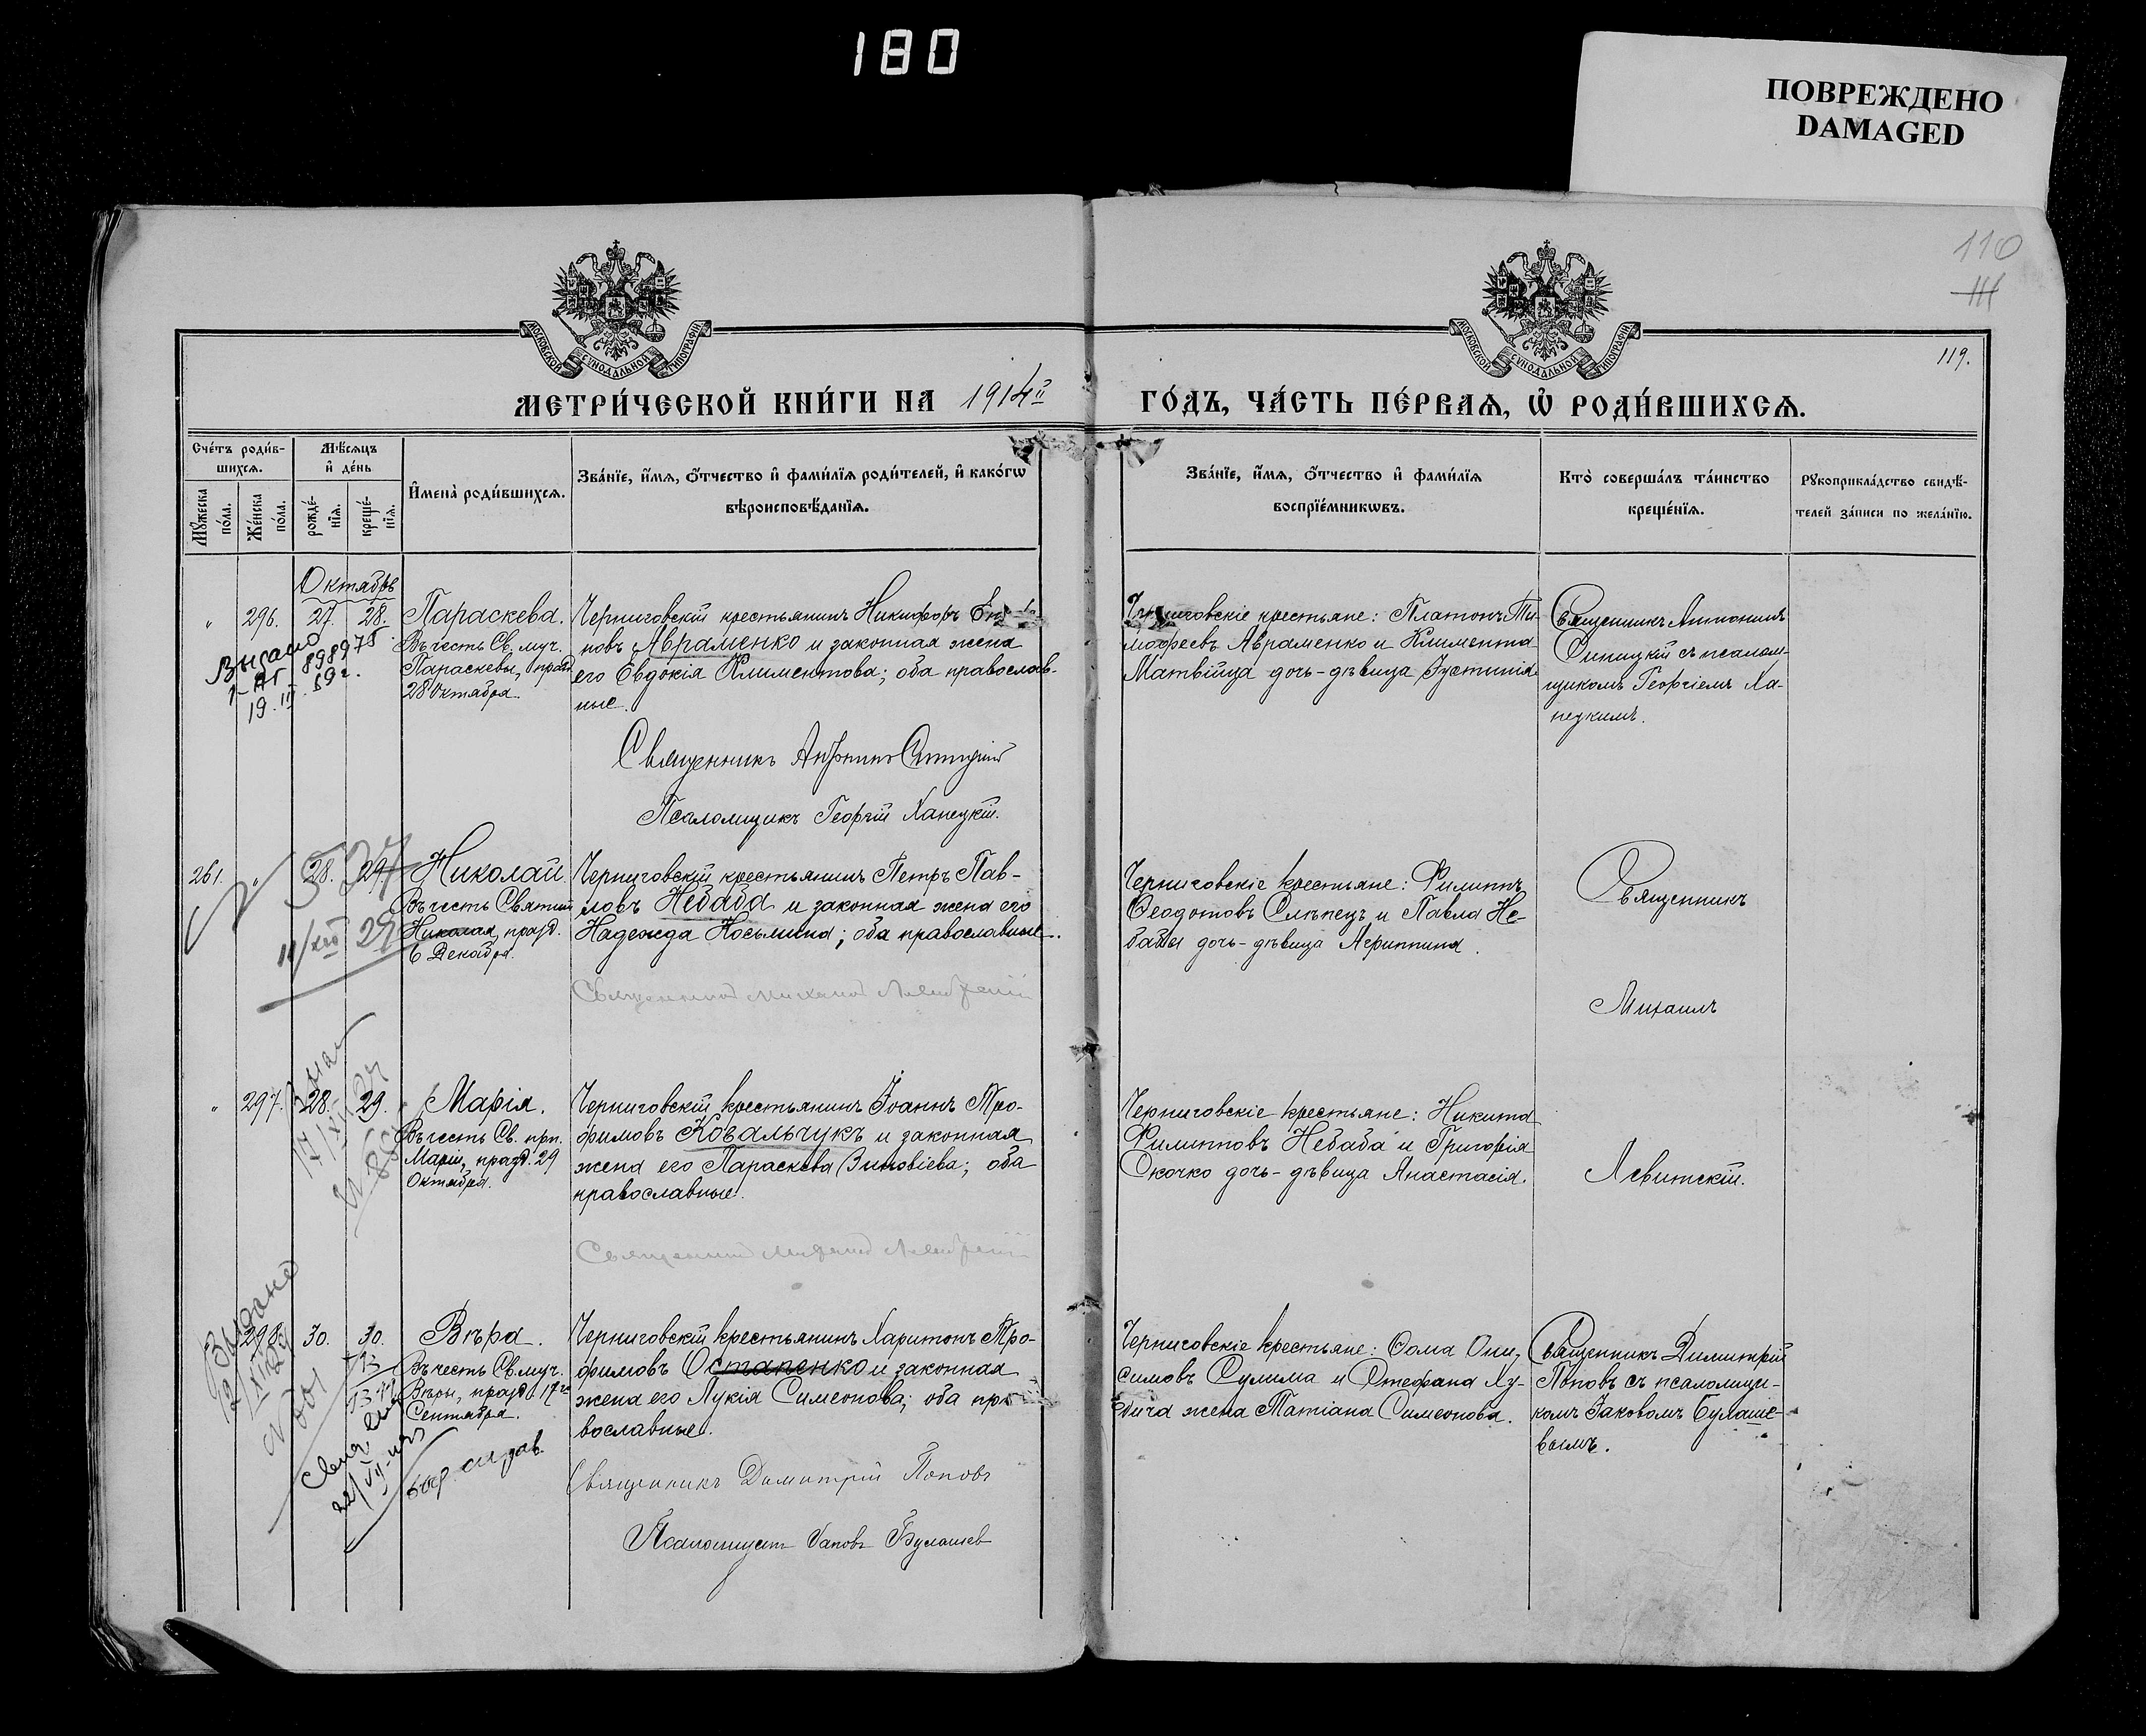 180
ПОВРЕЖДЕНО
DAMAGED
110
111
119.
МОСКОВСКОЙ СѴНОДАЛЬНОЙ ТИПОГРАФІИ
МОСКОВСКОЙ СѴНОДАЛЬНОЙ ТИПОГРАФІИ
МЕТРИ́ЧЕСКОЙ КНИ́ГИ НА 1914й ГО́ДЪ, ЧА́СТЬ ПЕ́РВАѦ, Ѡ҆ РОДИ́ВШИХСѦ.
Сче́тъ роди́в-
шихсѧ.
Мꙋ́жеска
по́ла.
Же́нска
по́ла.
Мѣ́сѧцъ
и҆ де́нь
рожде́-
нїѧ.
креще́-
нїѧ.
И҆мена̀ роди́вшихсѧ.
Зва́нїе, и҆́мѧ, ѻ҆́тчество и҆ фами́лїѧ роди́телей, и҆ како́гѡ
вѣроисповѣ́данїѧ.
Зва́нїе, и҆́мѧ, ѻ҆́тчество и҆ фами́лїѧ
воспрїе́мникѡвъ.
Кто̀ соверша́лъ та́инство
креще́нїѧ.
Рꙋкоприкла́дство свидѣ́-
телей за́писи по жела́нїю.
Октябрь
" 296. 27. 28.
Параскева.
Въ честь Св. муч.
Параскевы, празд.
28 Октября.
898975
19. III. 59 г.
Черниговскій крестьянинъ Никифоръ
новъ Авраменко и законная жена
его Евдокія Климентова; оба православ-
ные.
Священникъ Антонинъ Синицкій
Псаломщикъ Георгій Ханецкій.
Черниговскіе крестьяне: Платонъ Ти-
мофеевъ Авраменко и Климента
Матвійца дочь-дѣвица Іустинія.
Священникъ Антонинъ
Синицкій съ псалом-
щикомъ Георгіемъ Ха-
нецкимъ.
261. " 28. 29
Николай.
Въ честь Святит.
Николая, празд.
6 Декабря.
Черниговскій крестьянинъ Петръ Пав-
ловъ Небаба и законная жена его
Надежда Косьмина; оба православные.
Священникъ Михаилъ Левитскій
Черниговскіе крестьяне: Филиппъ
Ѳеодотовъ Слѣпецъ и Павла Не-
бабы дочь-дѣвица Агриппина.
Священникъ
Михаилъ
Левитскій.
" 297. 28. 29.
Марія.
Въ честь Св. прп.
Маріи, празд. 29
Октября.
Черниговскій крестьянинъ Іоаннъ Тро-
фимовъ Ковальчукъ и законная
жена его Параскева Зиновіева; оба
православные.
Священникъ Михаилъ Левитскій
Черниговскіе крестьяне: Никита
Филипповъ Небаба и Григорія
Скочко дочь-дѣвица Анастасія.
298. 30. 30.
Вѣра.
Въ честь Св. муч.
Вѣры, празд. 17го
Сентября.
Выдано
Черниговскій крестьянинъ Харитонъ Тро-
фимовъ Остапенко и законная
жена его Лукія Симеонова; оба пра-
вославные.
Священникъ Димитрій Поповъ
Псаломщикъ Іаковъ Булашев
Черниговскіе крестьяне: Ѳома Они-
симовъ Сулима и Стефана Ху-
дича жена Татіана Симеонова.
Священникъ Димитрій
Поповъ съ псаломщи-
комъ Іаковомъ Булаше-
вымъ.